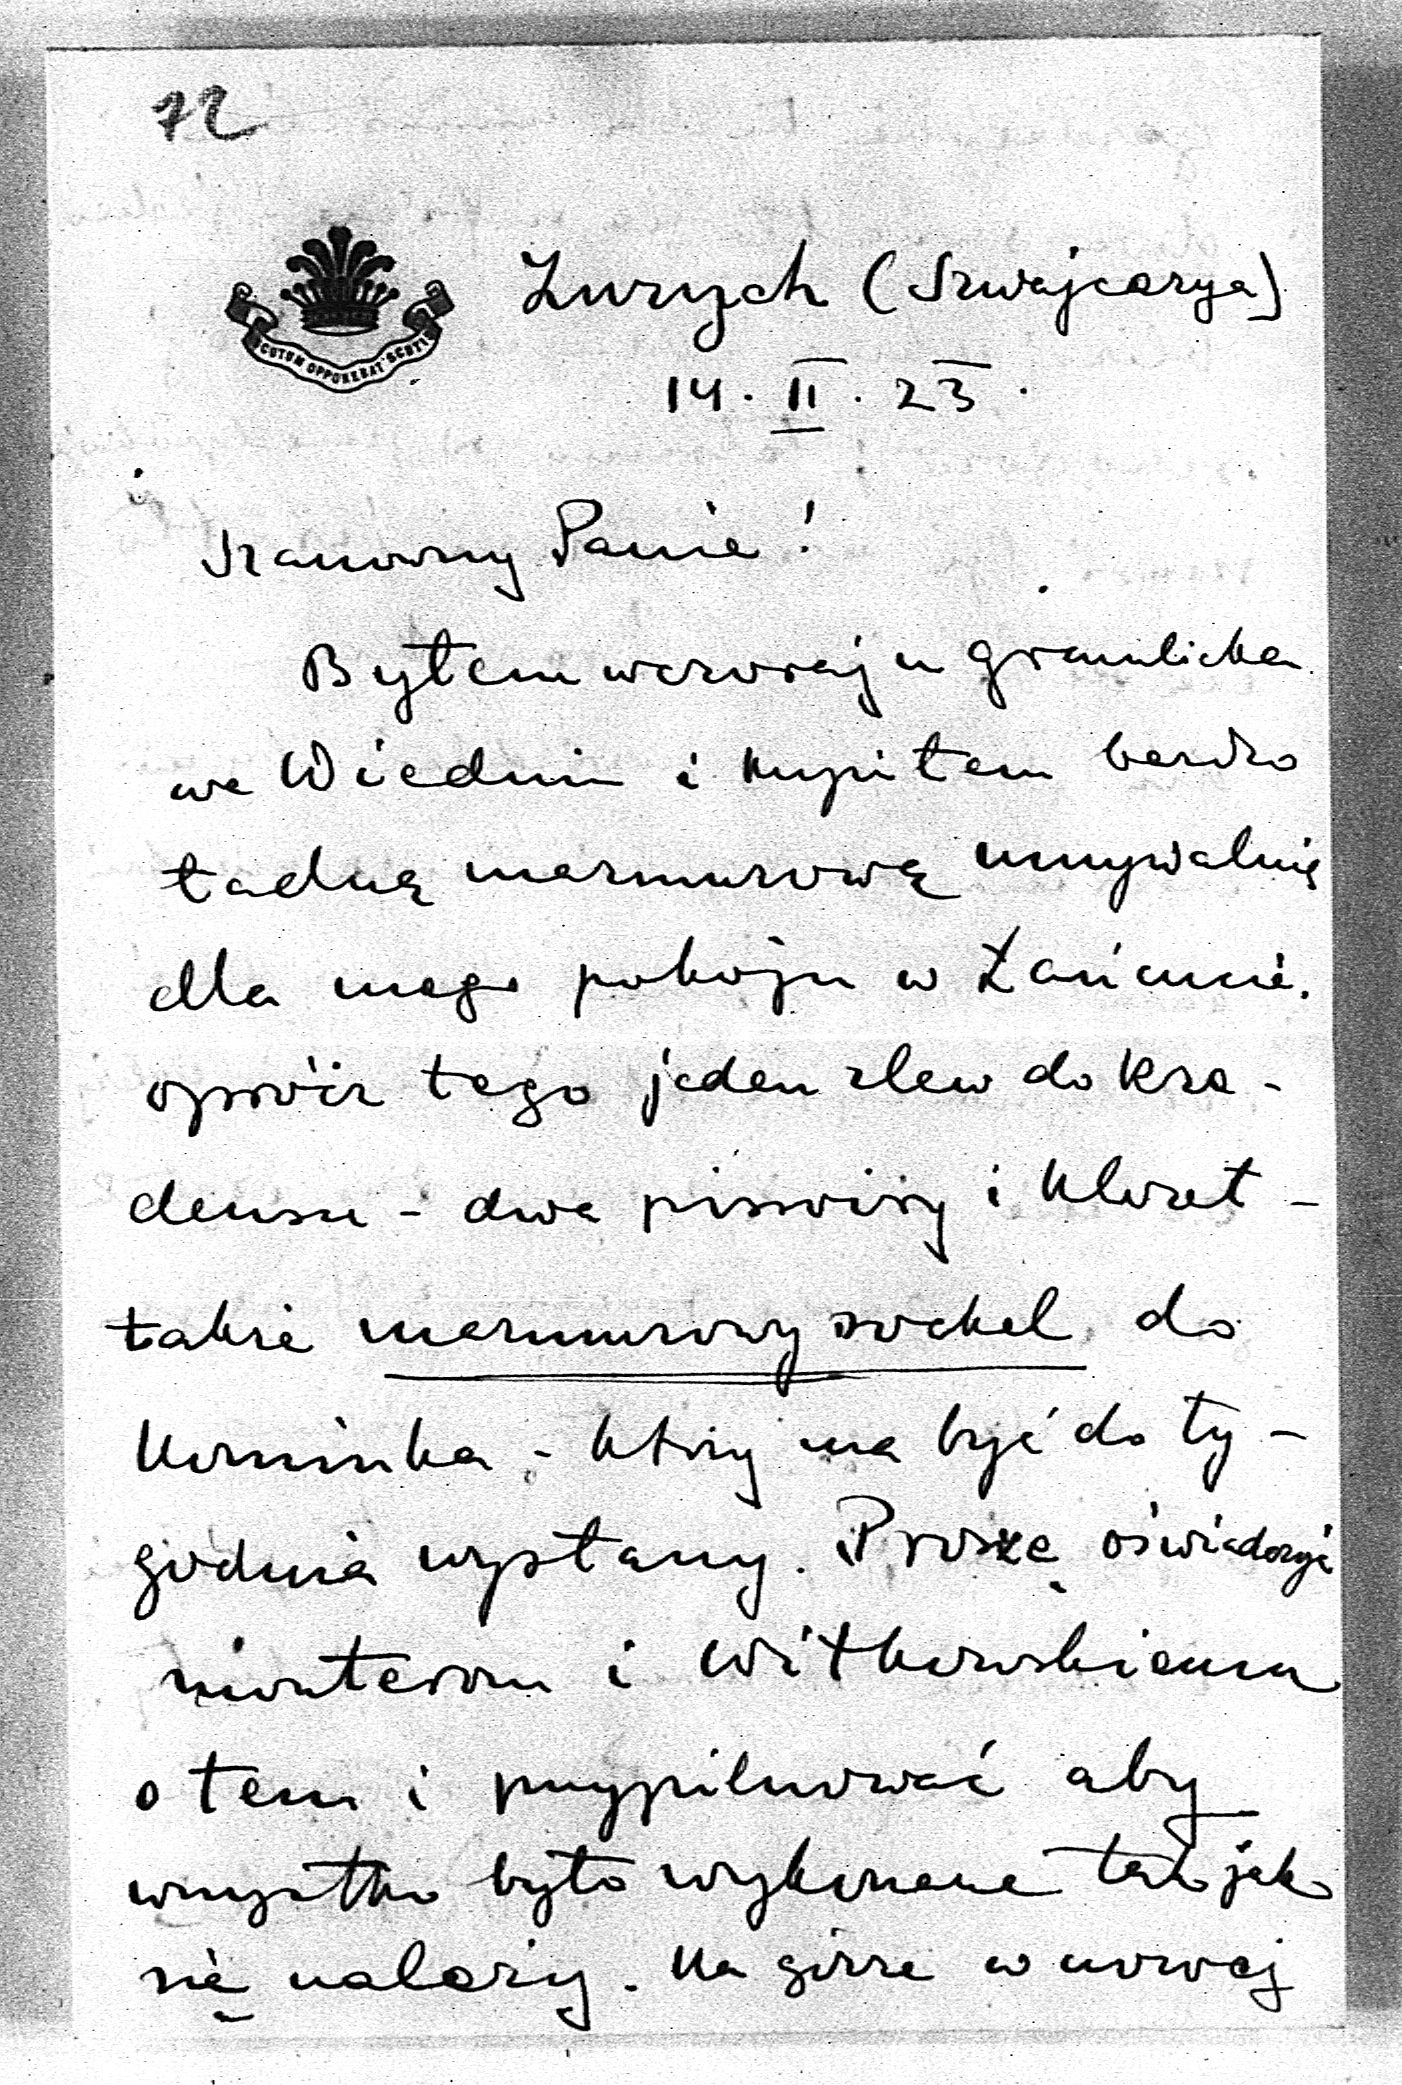 72
SCUTUM OPPONEBAT SCUTIS
Zurych (Szwajcarya)
14. II. 23.
Szanowny Panie!
Byłem wczoraj u Gramlicka
we Wiedniu i kupiłem bardzo
ładną marmurową umywalnię
dla mego pokoju w Łańcucie.
oprócz tego jeden zlew do kre-
densu - dwa pissoiry i klozet -
także marmurowy sockel do
kominka - który ma być do ty-
godnia wysłany. Proszę oświadczyć
monterom i Witkowskiemu
o tem i przypilnować aby
wszystko było wykonane tak jak
się należy. Na górze w nowej